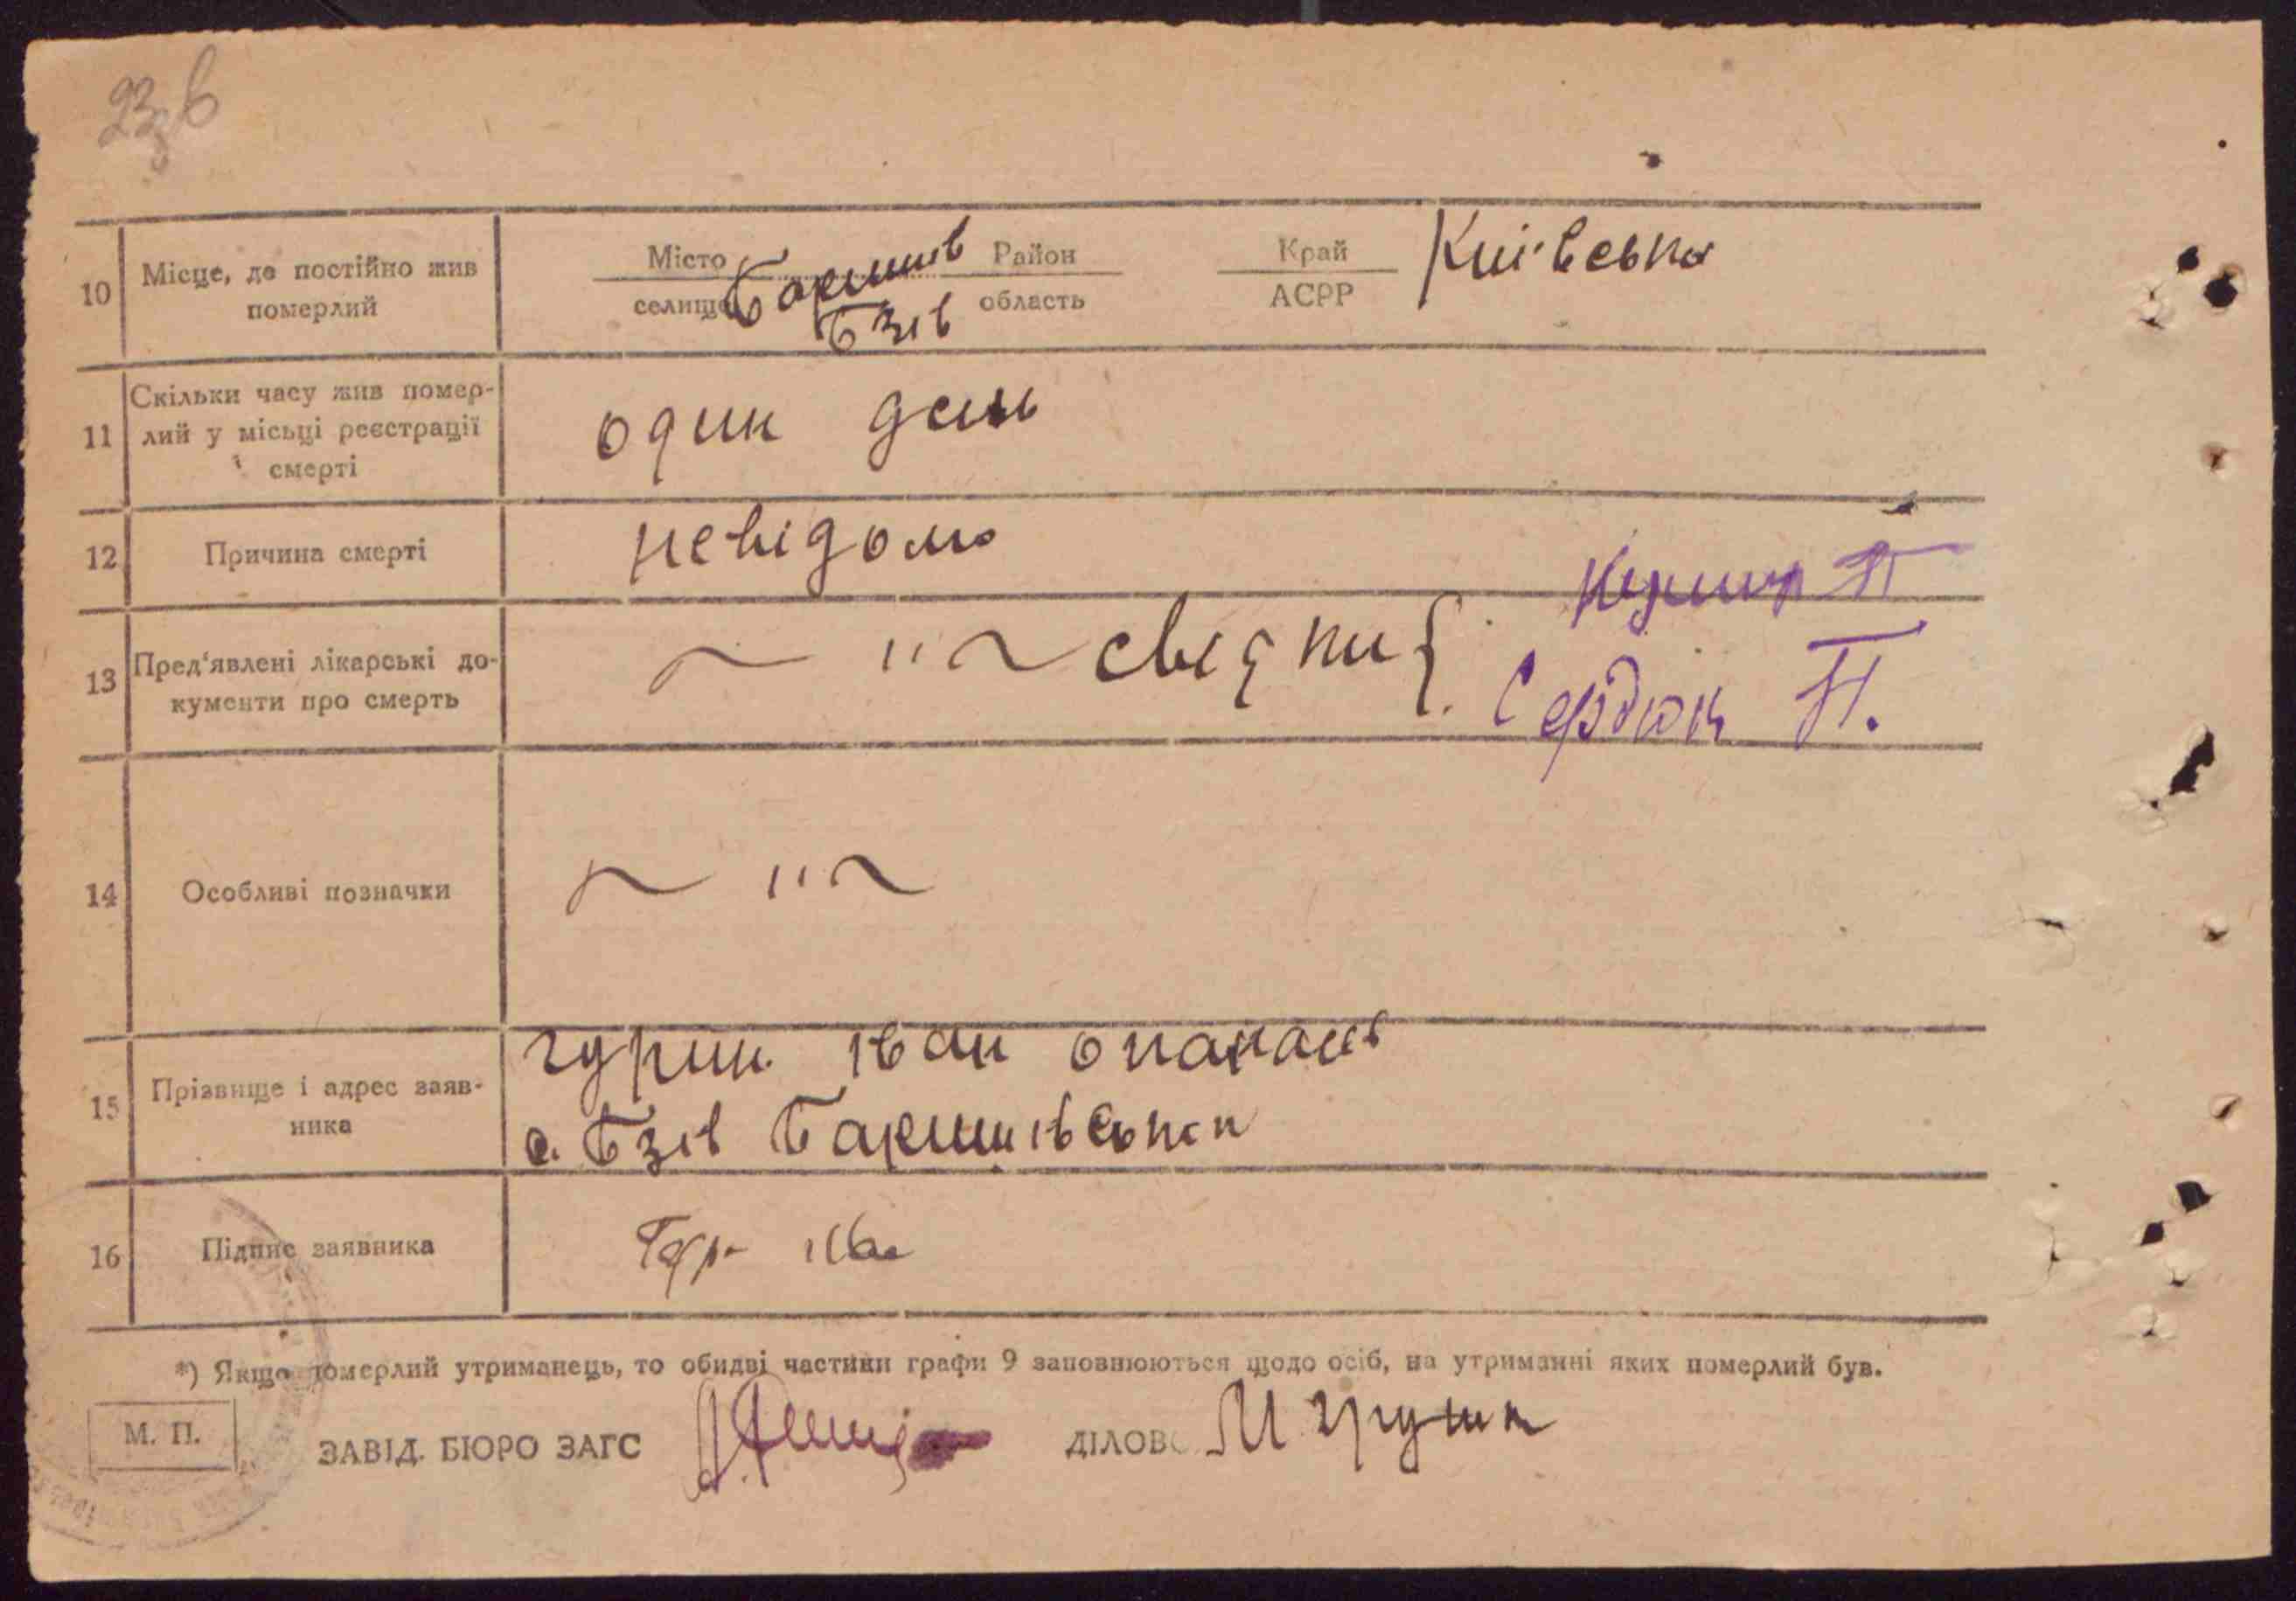 10 Місце, де постійно жив померлий
Місто селище Баришів Бзів Район область Край АСРР Київська
11 Скільки часу жив помер-
лий у місьці реєстрації
смерті
один день
12 Причина смерті
невідомо
13 Пред'явлені лікарські до-
кументи про смерть
~ " ~ свідки {
Сердюк П.
14 Особливі позначки
~ " ~
15 Прізвище і адрес заяв-
ника
гурин іван опанас
с. Бзів Баришівськ
16 Підпис заявника
*) Якщо померлий утриманець, то обидві частини графи 9 заповнюються щодо осіб, на утриманні яких померлий був.
М. П.
ЗАВІД. БЮРО ЗАГС
ДІЛОВ